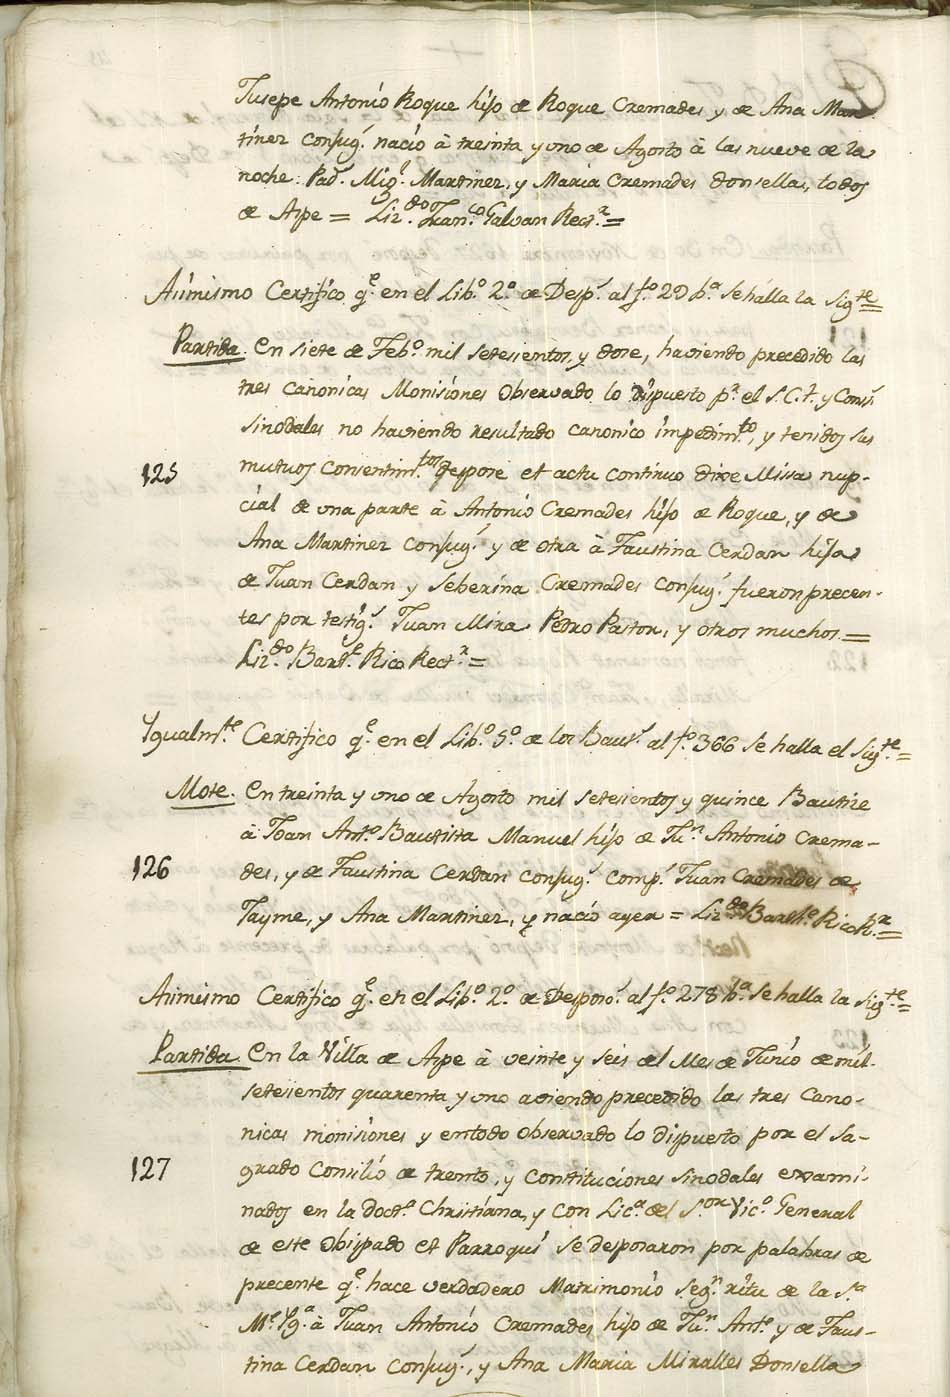 Jusepe Antonio Roque hijo de Roque Cremades y de Ana Mar
tinez Conjug.^s nacio à treinta y uno de Agosto à las nueve de la
noche: Pad.^s Mig.^l Martinez, y Maria Cremades donsella, todos
de Aspe = Liz.^do Fran.^co Galvan Rect.^r =
Asimismo Certifico q.^e en el Lib.^o 2.^o de Desp.^s al f.^o 29 b.^a se halla la sig.^te =
Partida. En siete de Feb.^o mil setesientos, y dose, haviendo precedido las
tres canonicas Monisiones observado lo dispuesto p.^r el S.C.t. y Cons.^s
sinodales no haviendo resultado canonico impedim.^to, y tenidos sus
125 mutuos Consentim.^tos despose et actu continuo dixe Missa nup-
cial de una parte à Antonio Cremades hijo de Roque, y de
Ana Martinez Conjug.^s y de otra à Faustina Cerdan hija
de Juan Cerdan y Seberina Cremades Conjug.^s fueron precen-
tes por testig.^s Juan Mira Pedro Pastor, y otros muchos =
Liz.^do Bart.^e Rico Rect.^r =
Ygualm.^te Certifico q.^e en el Lib.^o 5.^o de los Baut.^s al f.^o 366 se halla el Sig.^te =
Mote. En treinta y uno de Agosto mil setesientos y quince Bautize
à Joan Ant.^o Bautista Manuel hijo de Ju.^n Antonio Crema-
126 des, y de Faustina Cerdan conjug.^s comp.^s Juan Cremades de
Jayme, y Ana Martinez, y nacio ayer = Liz.^do Barth.^e Rico R.^r =
Asimismo Certifico q.^e en el Lib.^o 2.^o de Despos.^s al f.^o 278 b.^a se halla la Sig.^te =
Partida. En la Villa de Aspe à veinte y seis del Mes de Junio de mil
setesientos quarenta y uno aviendo precedido las tres Cano-
nicas monisiones y en todo observado lo dispuesto por el Sa-
127 grado Consilio de trento, y Constituciones sinodales exsami-
nados en la doct.^a Christiana, y con Lic.^a del S.^or Vic.^o General
de este Obispado et Parroqui.^s se desposaron por palabras de
precente q.^e hace verdadero Matrimonio Seg.^n ritu de la S.^ta
M.^e Yg.^a à Juan Antonio Cremades hijo de Ju.^n Ant.^o y de Faus-
tina Cerdan Conjug.^s, y Ana Maria Miralles Donsella